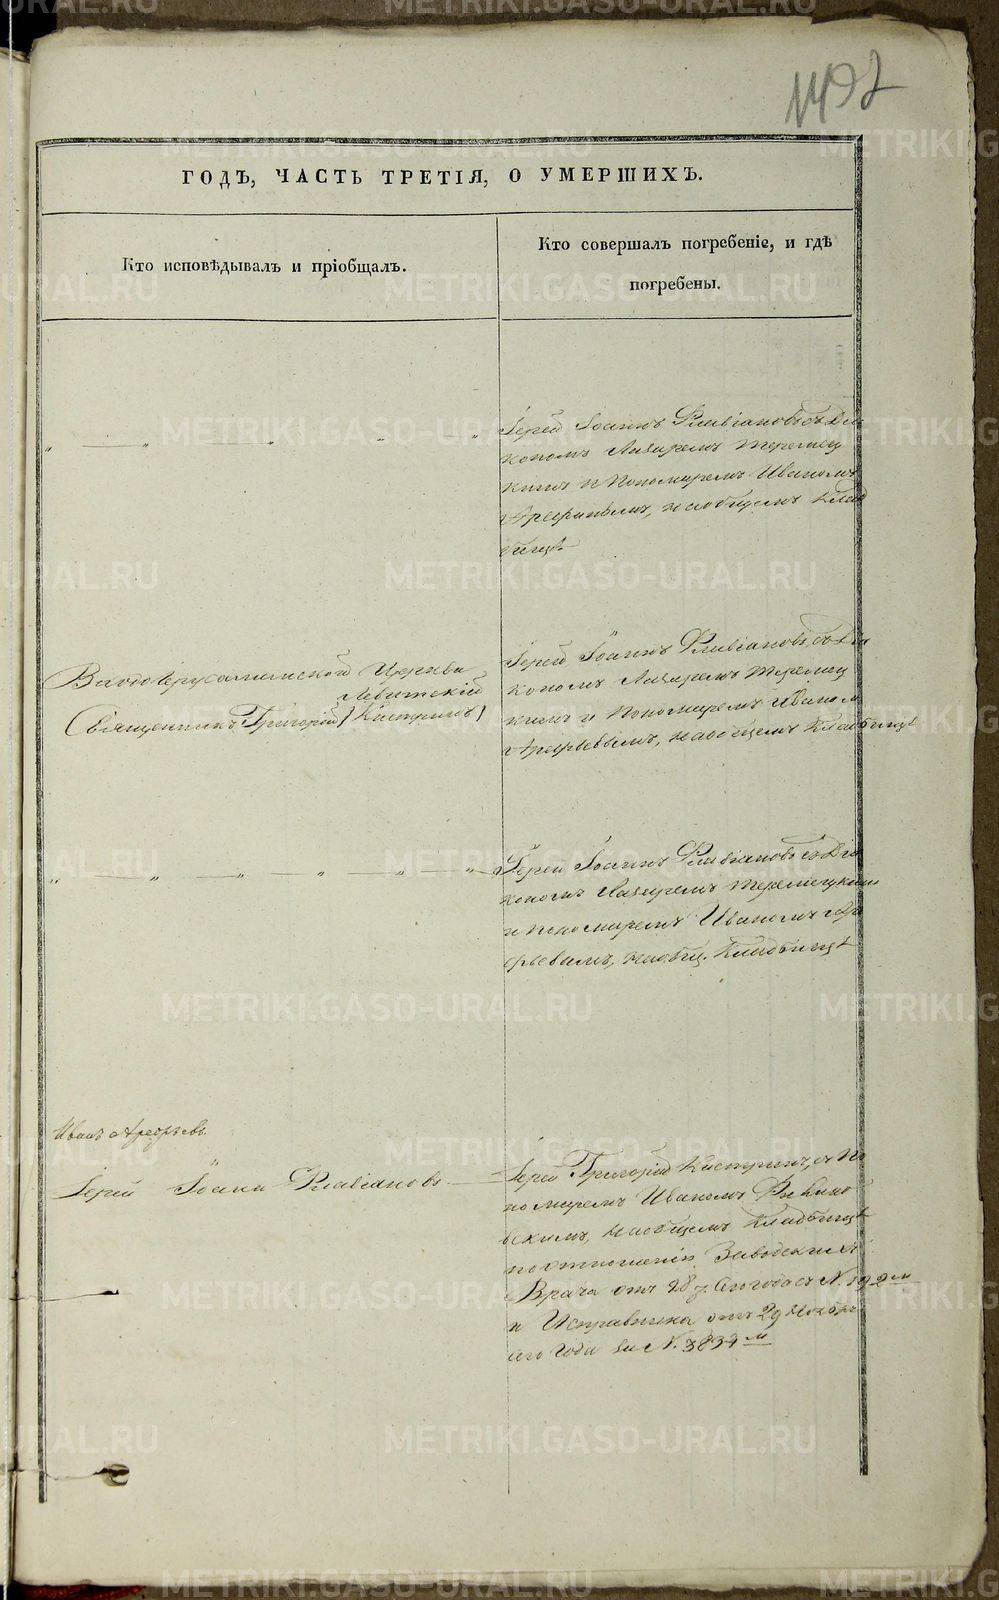 1492
ГОДЪ, ЧАСТЬ ТРЕТІЯ, О УМЕРШИХЪ.
Кто исповѣдывалъ и пріобщалъ.
Кто совершалъ погребеніе, и гдѣ
погребены.
Іерей Іоаннъ Флавіановъ съ Діа
кономъ Лазаремъ Теремец
кимъ и Пономаремъ Иваномъ
Арефьевымъ, на общемъ клад
бищѣ
Церкви
Левитскій
Священникъ Григорій (Кастринъ)
Іерей Іоаннъ Флавіановъ, съ Діа
кономъ Лазаремъ Теремец
кимъ и Пономаремъ Иваномъ
Арефьевымъ, на общемъ кладбищѣ
Іерей Іоаннъ Флавіановъ съ Діа
кономъ Лазаремъ Теремецкимъ
и Пономаремъ Иваномъ Аре
фьевымъ, на общ. кладбищѣ
Иванъ Арефьевъ.
Іерей Іоаннъ Флавіановъ
Іерей Григорій Кастринъ, съ По
номаремъ Иваномъ
на общемъ кладбищѣ
по отношенію Заводскихъ
Врача отъ 28 г. сего года съ N. 192м
и Исправника отъ 29 Ноября
сего года за N. 3834м
METRIKI.GASO-URAL.RU